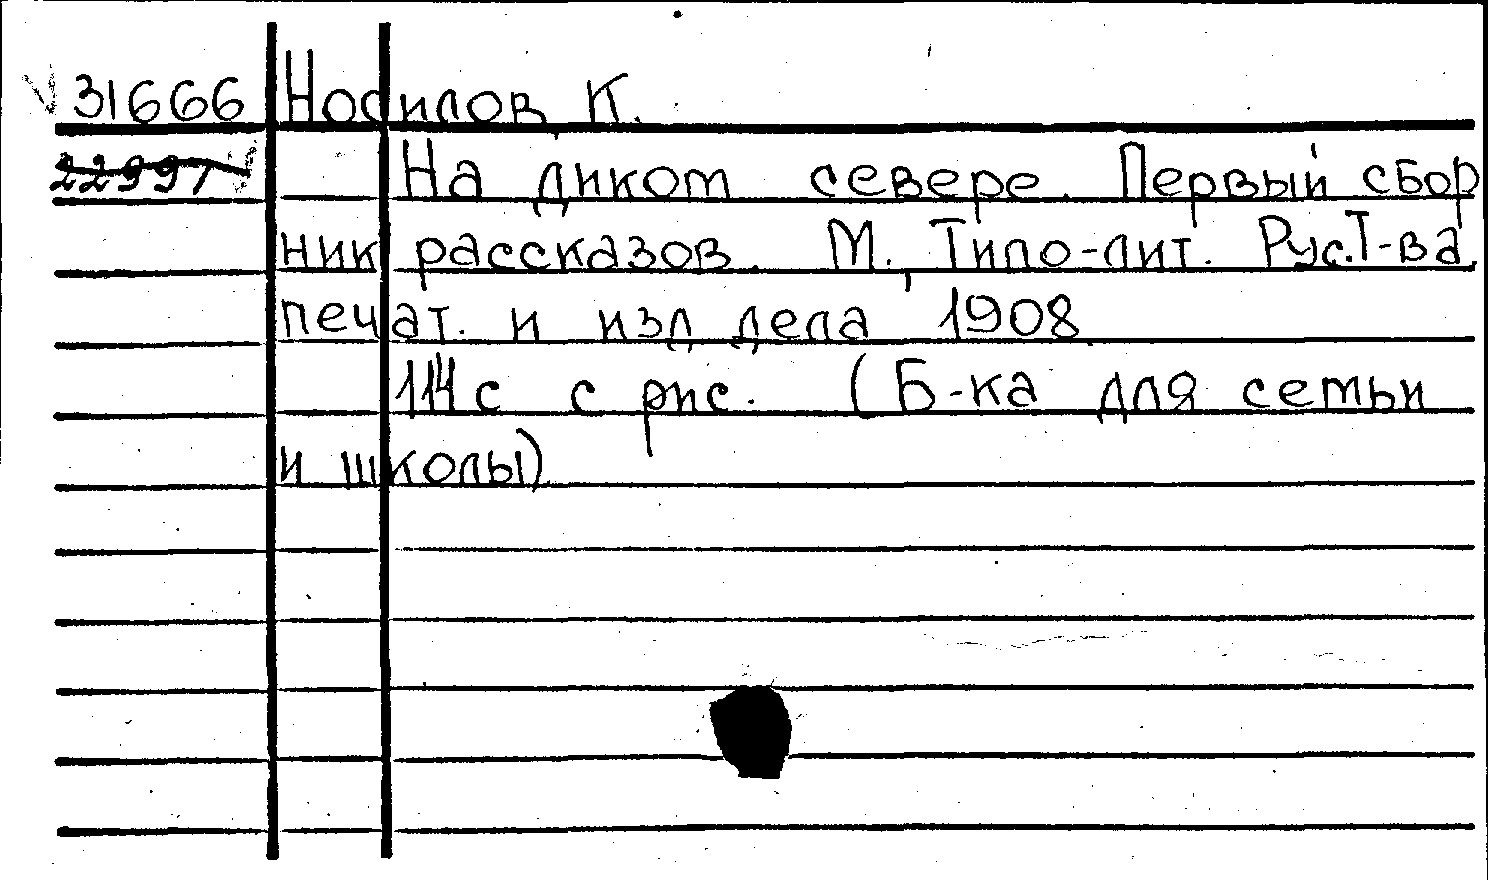 31666 Носилов, К.
22991 На диком севере. Первый сбор
ник рассказов. М., Типо-лит. Рус.Т-ва
печат. и изд дела 1908.
114 с с рис. (Б-ка для семьи
и школы)